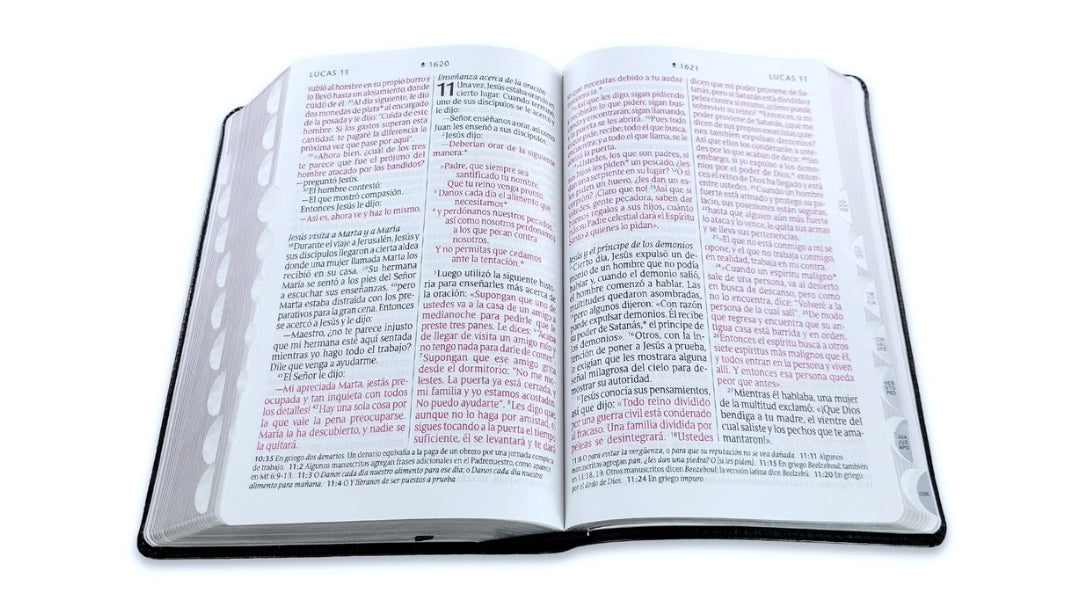 LUCAS 11
1620
subió al hombre en su propio burro y
lo llevó hasta un alojamiento, donde
cuidó de él. ³⁵Al día siguiente, le dio
dos monedas de plata* al encargado
de la posada y le dijo: "Cuida de este
hombre. Si los gastos superan esta
cantidad, te pagaré la diferencia la
próxima vez que pase por aquí".
³⁶»Ahora bien, ¿cuál de los tres
te parece que fue el prójimo del
hombre atacado por los bandidos?
—preguntó Jesús.
³⁷El hombre contestó:
—El que mostró compasión.
Entonces Jesús le dijo:
—Así es, ahora ve y haz lo mismo.
Jesús visita a Marta y a María
³⁸Durante el viaje a Jerusalén, Jesús y
sus discípulos llegaron a cierta aldea
donde una mujer llamada Marta los
recibió en su casa. ³⁹Su hermana
María se sentó a los pies del Señor
a escuchar sus enseñanzas, ⁴⁰pero
Marta estaba distraída con los pre-
parativos para la gran cena. Entonces
se acercó a Jesús y le dijo:
—Maestro, ¿no te parece injusto
que mi hermana esté aquí sentada
mientras yo hago todo el trabajo?
Dile que venga a ayudarme.
⁴¹El Señor le dijo:
—Mi apreciada Marta, ¡estás pre-
ocupada y tan inquieta con todos
los detalles! ⁴²Hay una sola cosa por
la que vale la pena preocuparse.
María la ha descubierto, y nadie se
la quitará.
Enseñanza acerca de la oración
11 Una vez, Jesús estaba orando en
cierto lugar. Cuando terminó,
uno de sus discípulos se le acercó y
le dijo:
—Señor, enséñanos a orar, así como
Juan les enseñó a sus discípulos.
²Jesús dijo:
—Deberían orar de la siguiente
manera:*
»Padre, que siempre sea
santificado tu nombre.
Que tu reino venga pronto.
³ Danos cada día el alimento que
necesitamos*
⁴ y perdónanos nuestros pecados,
así como nosotros perdonamos
a los que pecan contra
nosotros.
Y no permitas que cedamos
ante la tentación.*
⁵Luego utilizó la siguiente histo-
ria para enseñarles más acerca de
la oración: «Supongan que uno de
ustedes va a la casa de un amigo a
medianoche para pedirle que le
preste tres panes. Le dices: ⁶"Acaba
de llegar de visita un amigo mío y
no tengo nada para darle de comer".
⁷Supongan que ese amigo grita
desde el dormitorio: "No me mo-
lestes. La puerta ya está cerrada, y
mi familia y yo estamos acostados.
No puedo ayudarte". ⁸Les digo que,
aunque no lo haga por amistad, si
sigues tocando a la puerta el tiempo
suficiente, él se levantará y te dará
10:35 En griego dos denarios. Un denario equivalía a la paga de un obrero por una jornada completa
de trabajo. 11:2 Algunos manuscritos agregan frases adicionales en el Padrenuestro, como aparecen
en Mt 6:9-13. 11:3 O Danos cada día nuestro alimento para ese día; o Danos cada día nuestro
alimento para mañana. 11:4 O Y líbranos de ser puestos a prueba.
1621
LUCAS 11
que necesitas debido a tu audaz
⁹»Así que les digo, sigan pidiendo
recibirán lo que piden; sigan bus-
cando y encontrarán; sigan llamando,
la puerta se les abrirá. ¹⁰Pues todo
pide, recibe; todo el que busca,
encuentra; y a todo el que llama, se le
abrirá la puerta.
ustedes, los que son padres, si
sus hijos les piden* un pescado, ¿les
dan una serpiente en su lugar? ¹²O si
les piden un huevo, ¿les dan un es-
¡Claro que no! ¹³Así que si
gente pecadora, saben dar
buenos regalos a sus hijos, cuánto
más su Padre celestial dará el Espíritu
Santo a quienes lo pidan».
Jesús y el príncipe de los demonios
¹⁴Cierto día, Jesús expulsó un de-
monio de un hombre que no podía
hablar y, cuando el demonio salió,
el hombre comenzó a hablar. Las
multitudes quedaron asombradas,
¹⁵pero algunos dijeron: «Con razón
puede expulsar demonios. Él recibe
su poder de Satanás,* el príncipe de
los demonios». ¹⁶Otros, con la in-
tención de poner a Jesús a prueba,
le exigían que les mostrara alguna
señal milagrosa del cielo para de-
mostrar su autoridad.
¹⁷Jesús conocía sus pensamientos,
así que dijo: «Todo reino dividido
por una guerra civil está condenado
al fracaso. Una familia dividida por
peleas se desintegrará. ¹⁸Ustedes
dicen que mi poder proviene de Sa-
tanás, pero si Satanás está dividido y
pelea contra sí mismo, ¿cómo puede
sobrevivir su reino? ¹⁹Entonces, si mi
poder proviene de Satanás, ¿qué me
dicen de sus propios exorcistas quie-
nes también expulsan demonios?
Así que ellos los condenarán a uste-
des por lo que acaban de decir. ²⁰Sin
embargo, si yo expulso a los demo-
nios por el poder de Dios,* enton-
ces el reino de Dios ha llegado y está
entre ustedes. ²¹Cuando un hombre
fuerte está armado y protege su pa-
lacio, sus posesiones están seguras,
²²hasta que alguien aún más fuerte
lo ataca y lo vence, le quita sus armas
y se lleva sus pertenencias.
²³»El que no está conmigo a mí se
opone, y el que no trabaja conmigo,
en realidad, trabaja en mi contra.
²⁴»Cuando un espíritu maligno*
sale de una persona, va al desierto
en busca de descanso, pero como
no lo encuentra, dice: "Volveré a la
persona de la cual salí". ²⁵De modo
que regresa y encuentra que su an-
tigua casa está barrida y en orden.
²⁶Entonces el espíritu busca a otros
siete espíritus más malignos que él,
y todos entran en la persona y viven
allí. Y entonces esa persona queda
peor que antes».
²⁷Mientras él hablaba, una mujer
de la multitud exclamó: «¡Que Dios
bendiga a tu madre, el vientre del
cual saliste y los pechos que te ama-
mantaron!».
11:8 O para evitar la vergüenza, o para que su reputación no se vea dañada. 11:11 Algunos
manuscritos agregan pan, ¿les dan una piedra? O [si les piden]. 11:15 En griego Beelzeboul; también
en 11:18, 19. Otros manuscritos dicen Beezeboul; la versión latina dice Beelzebú. 11:20 En griego
por el dedo de Dios. 11:24 En griego impuro.